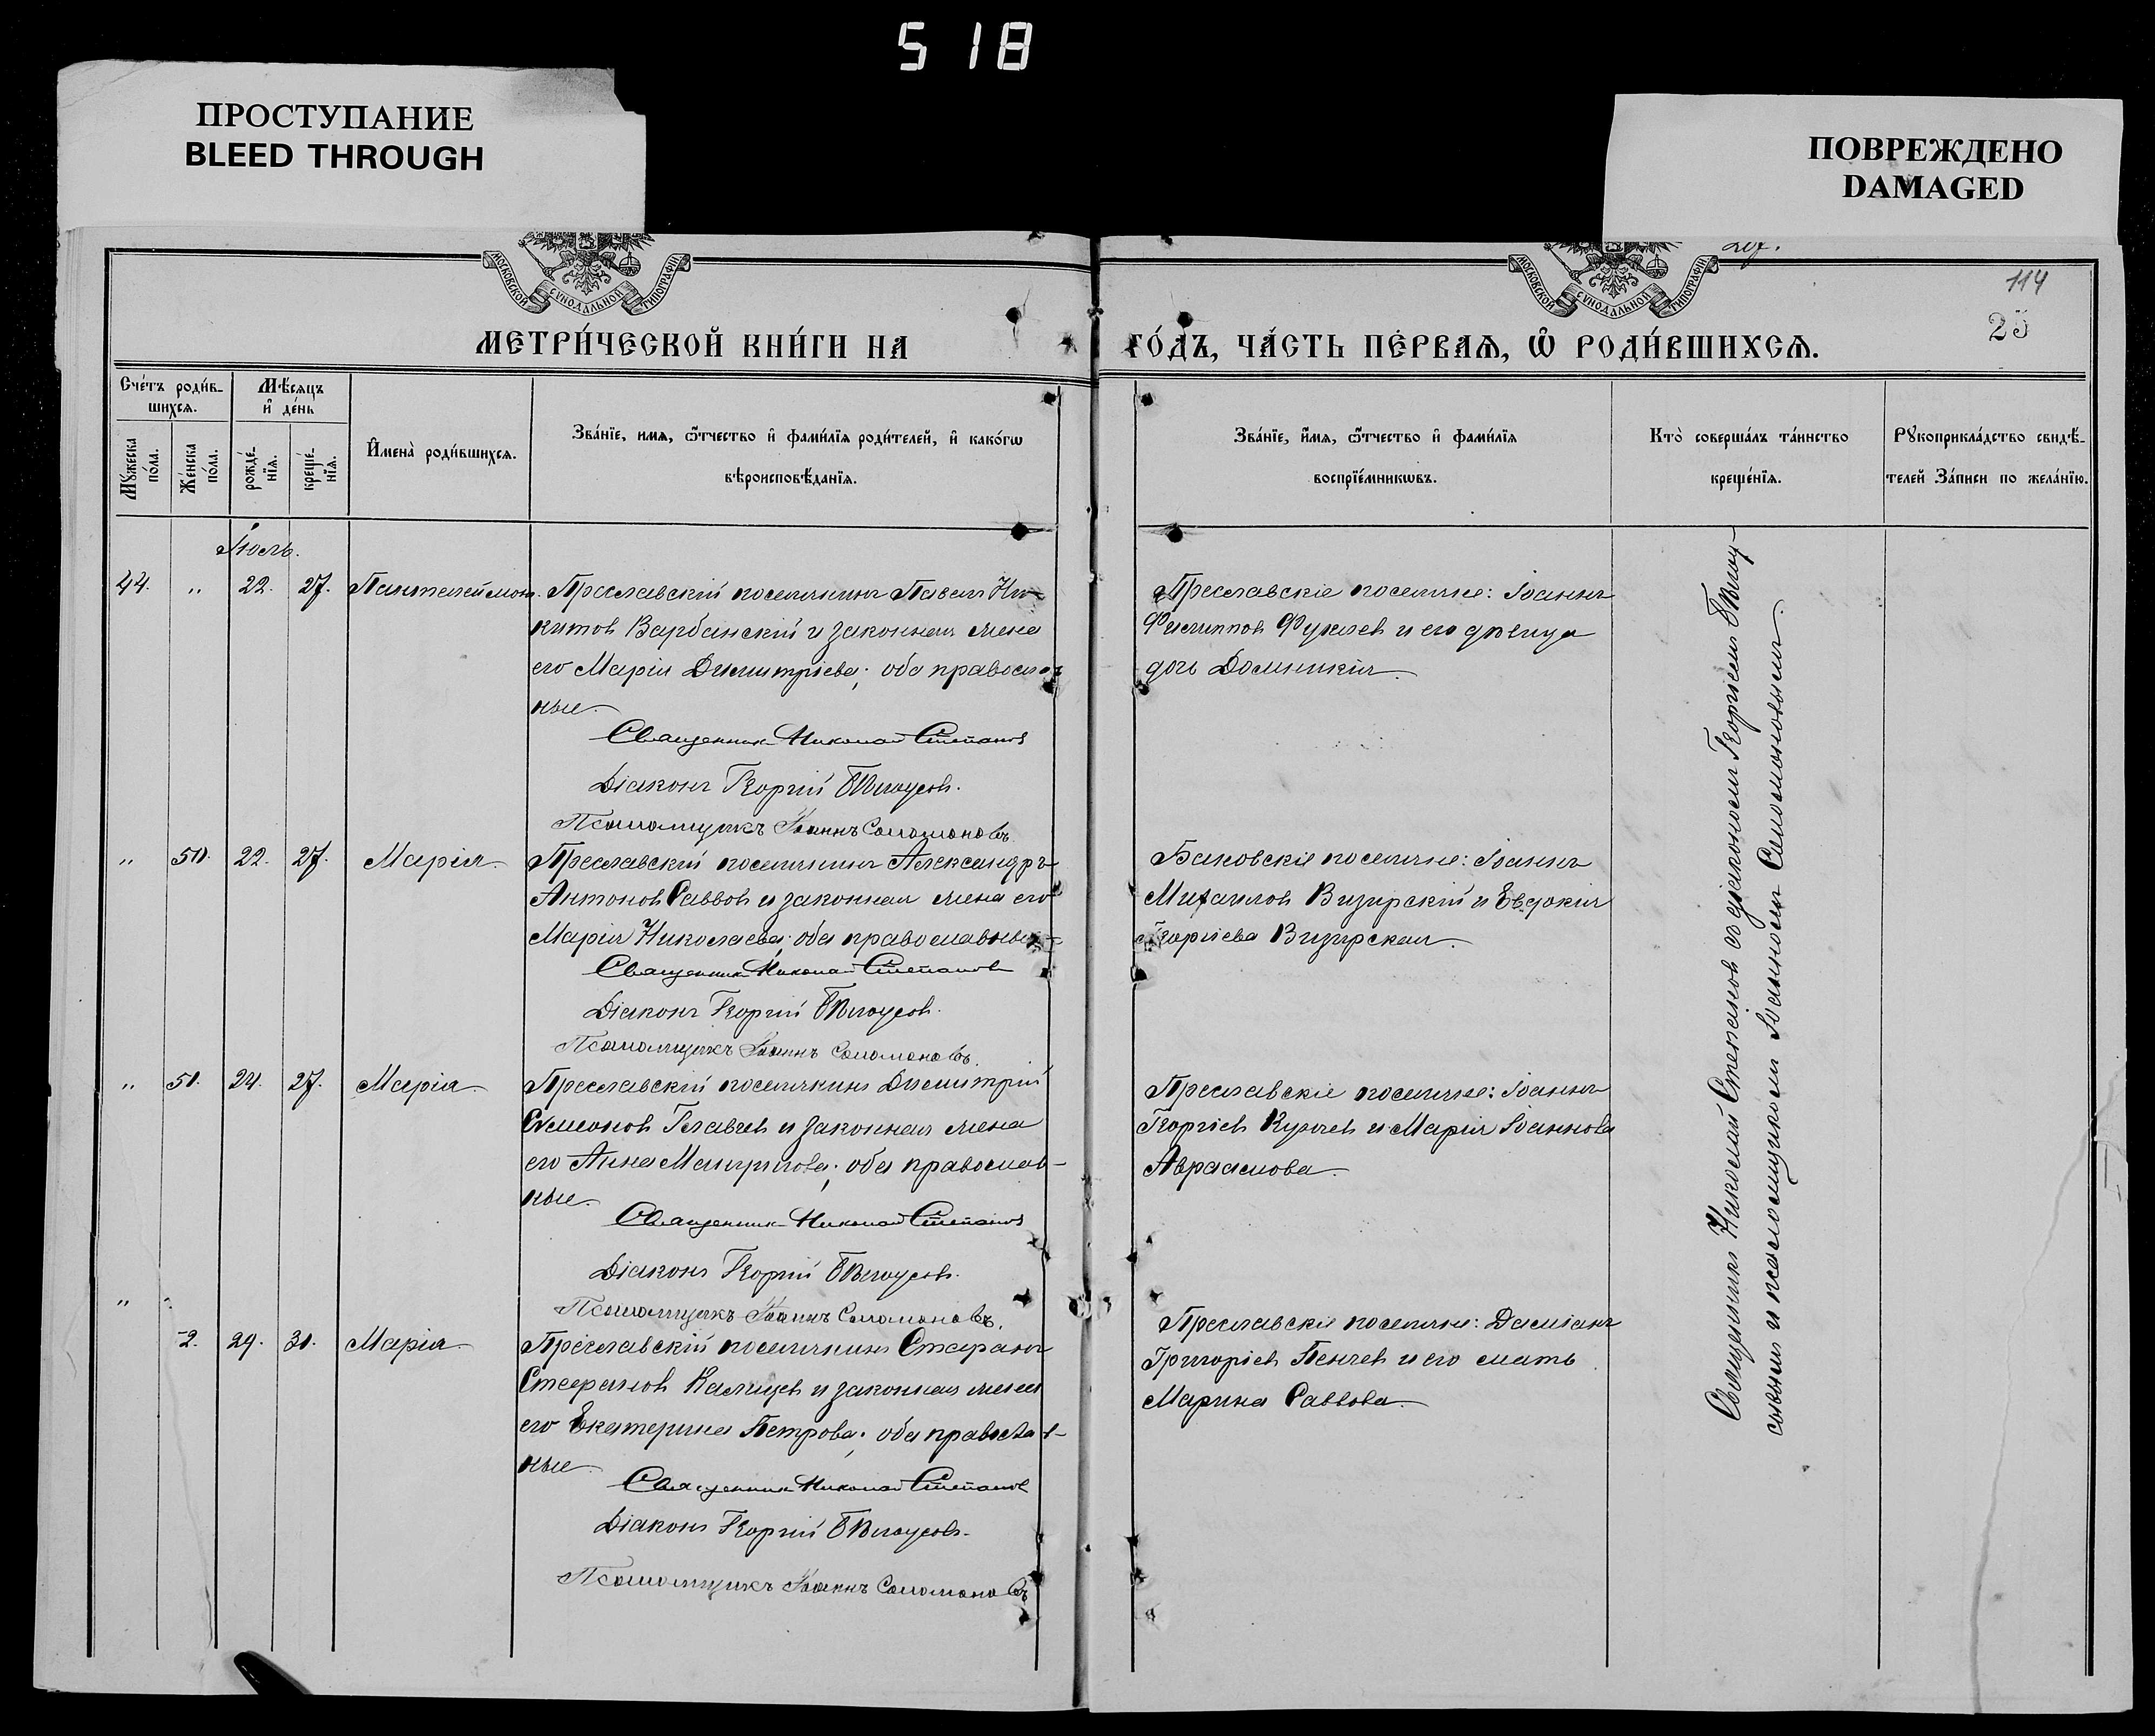 5 18
ПРОСТУПАНИЕ
BLEED THROUGH
ПОВРЕЖДЕНО
DAMAGED
МОСКОВСКОЙ СѴНОДАЛЬНОЙ ТИПОГРАФІИ
МОСКОВСКОЙ СѴНОДАЛЬНОЙ ТИПОГРАФІИ
114
25
МЕТРИ́ЧЕСКОЙ КНИ́ГИ НА
ГО́ДЪ, ЧА́СТЬ ПЕ́РВАѦ, Ѡ҆ РОДИ́ВШИХСѦ.
Сче́тъ роди́в-
шихсѧ.
Мꙋ́жеска
по́ла.
Же́нска
по́ла.
Мѣ́сѧцъ
и҆ де́нь
рожде́-
нїѧ.
креще́-
нїѧ.
И҆мена̀ роди́вшихсѧ.
Зва́нїе, имѧ, ѻ҆́тчество и҆ фами́лїѧ роди́телей, и҆ како́гѡ
вѣроисповѣ́данїѧ.
Зва́нїе, и҆́мѧ, ѻ҆́тчество и҆ фами́лїѧ
воспрїе́мникѡвъ.
Кто̀ соверша́лъ та́инство
креще́нїѧ.
Рꙋкоприкла́дство свидѣ́-
телей За́писи по жела́нїю.
Іюль.
44. „ 22. 27. Пантелеймонъ. Преславскій поселянинъ Павелъ Ни-
китовъ Варбанскій и законная жена
его Марія Димитріева; оба православ-
ные.
Священникъ Николай Степановъ
Діаконъ Георгій Бѣлоусовъ.
Псаломщикъ Іоаннъ Соломоновъ
Преславскіе поселяне: Іоаннъ
Филипповъ и его
дочь Домникія.
„ 50. 22. 27. Марія. Преславскій поселянинъ Александръ
Антоновъ Саввовъ и законная жена его
Марія Николаева; оба православные
Священникъ Николай Степановъ
Діаконъ Георгій Бѣлоусовъ.
Псаломщикъ Іоаннъ Соломоновъ.
Бановскіе поселяне: Іоаннъ
Михаиловъ Визирскій и Евдокія
Георгіева Визирская.
„ 51. 24. 27. Марія. Преславскій поселянинъ Димитрій
Сѵмеоновъ Главчевъ и законная жена
его Анна; оба православ-
ные.
Священникъ Николай Степановъ
Діаконъ Георгій Бѣлоусовъ.
Псаломщикъ Іоаннъ Соломоновъ.
Преславскіе поселяне: Іоаннъ
Георгіевъ и Марія Іоаннова
Авраамова.
„ 2. 29. 31. Марія. Преславскій поселянинъ Стефанъ
Стефановъ и законная жена
его Екатерина Петрова; оба православ-
ные.
Священникъ Николай Степановъ
Діаконъ Георгій Бѣлоусовъ.
Псаломщикъ Іоаннъ Соломоновъ
Преславскіе поселяне: Даміанъ
Григоріевъ Пенчевъ и его мать
Марина Саввова.
Священникъ Николай Степановъ съ діакономъ Георгіемъ Бѣлоу-
совымъ и псаломщикомъ Іоанномъ Соломоновымъ.